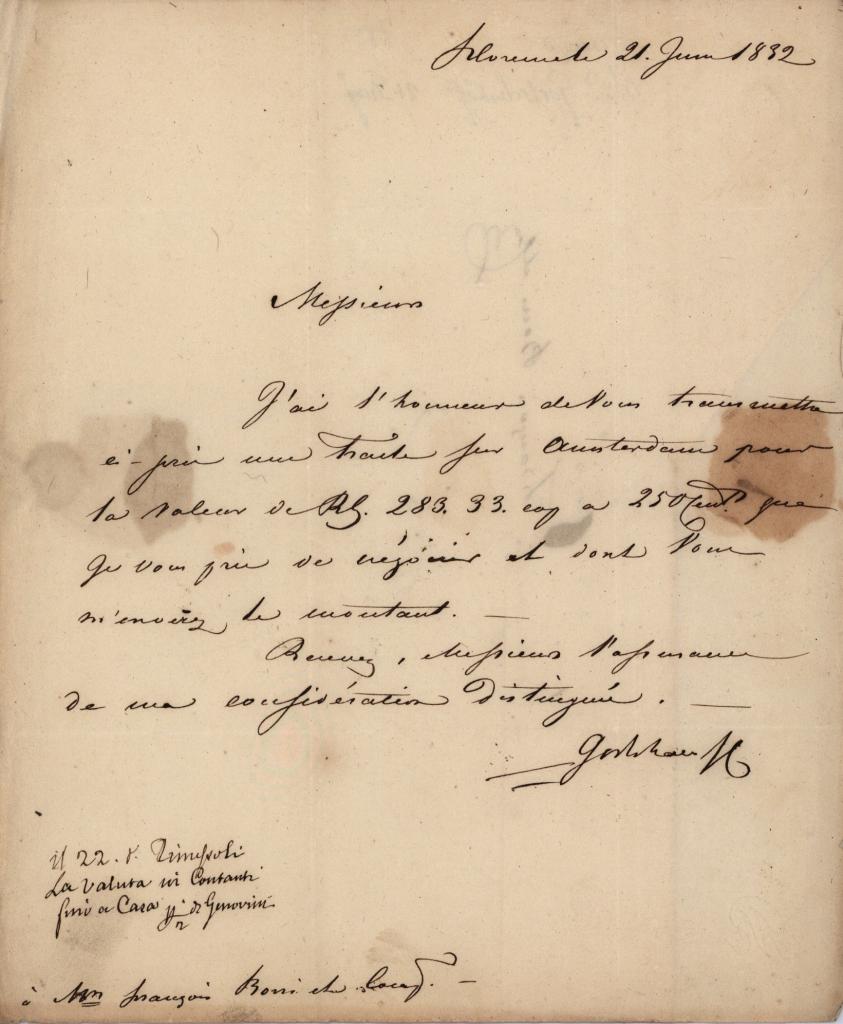 Florence le 21. Juin 1832
Messieurs
J'ai l'honneur de Vous transmettre
ci-joint une traite sur Amsterdam pour
la valeur de 283. 33. a 250 que
je vous prie de négocier et dont Vous
m'enverez le montant. —
Recevez, Messieurs l'assurance
de ma considération distinguée. —
il 22. d. Rimessoli
La Valuta in Contanti
fino a Casa di Genovini
à Mrs François Borri et Comp. —